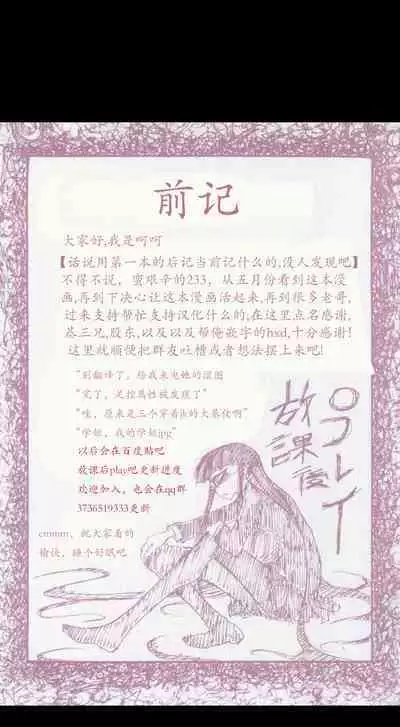 前记
大家好,我是呵呵
【话说用第一本的后记当前记什么的,没人发现吧】
不得不说，蛮艰辛的233，从五月份看到这本漫
画,再到下决心让这本漫画活起来,再到很多老哥,
过来支持帮忙支持汉化什么的,在这里点名感谢,
蒸三兄,股东,以及以及帮俺嵌字的hxd,十分感谢!
这里就顺便把群友吐槽或者想法摆上来吧!
"别翻译了，给我来电她的涩图
"完了，足控属性被发现了"
"哇，原来是三个穿着jk的大暮伎啊"
"学姐，我的学姐jpg"
以后会在百度贴吧
放课后play吧更新进度
欢迎加入，也会在qq群
3736519333更新
emmm，祝大家看的
愉快，睡个好眠吧
放課後
プレイ